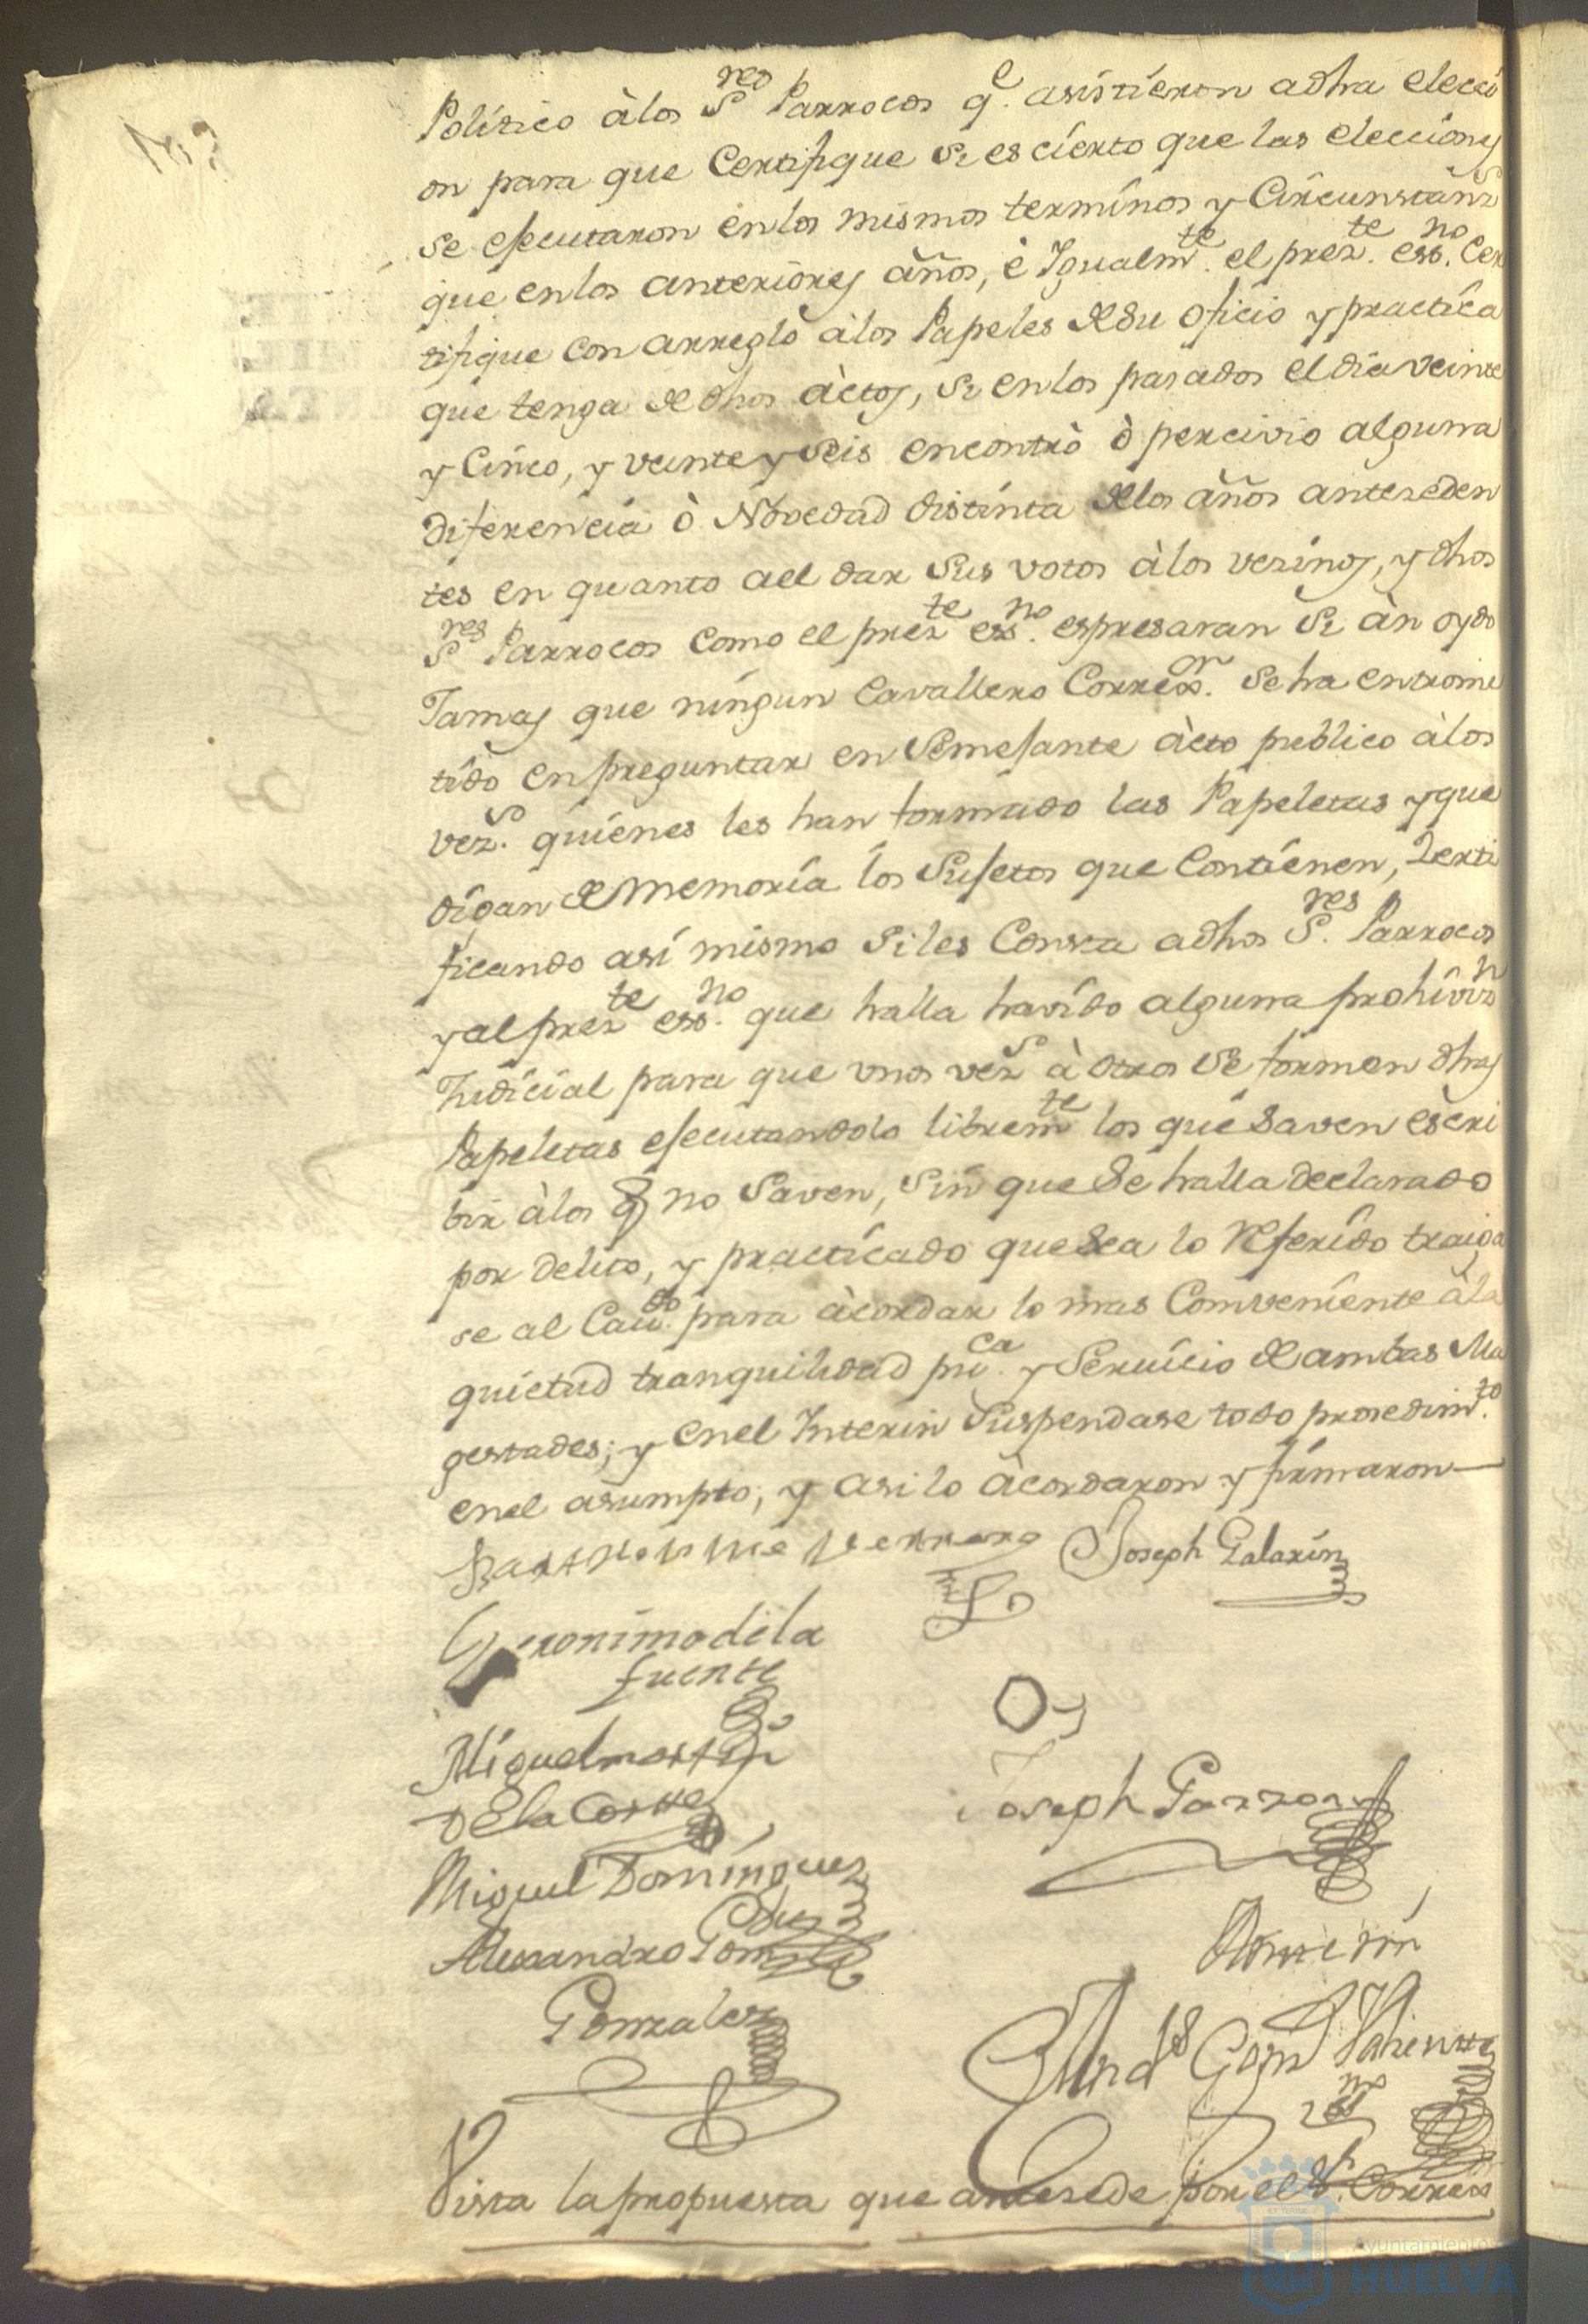 Politico àlos S.res Parrocos q.e asistieron adha elecci
on para que Certifique si es cierto que las elecciones
se ejecutaron enlos mismos terminos y Circunstan.s
que enlos anteriores años, è Igualm.te el prez.te ess.no Cer
tifique con arreglo àlos Papeles de su oficio y practica
que tenga de dhos àctos, si enlos pasados el dia veinte
y Cinco, y veinte y seis encontrò ò percivio alguna
diferencia ò Novedad distinta delos años anteseden
tes en quanto ael dar sus votos àlos vezinos, y dhos
S.res Parrocos como el prez.te ess.no espresaran si àn oydo
Jamas que ningun Cavallero Correx.or se ha entrome
tido en preguntar en semejante àcto publico àlos
vez.s quienes les han formado las Papeletas y que
digan de memoria los sujetos que Contienen, Zerti
ficando asi mismo si les Consta adhos S.res Parrocos
y al prez.te ess.no que halla havido alguna prohiviz.n
Judicial para que unos vez.s à otros se formen dhas
Papeletas ejecutandolo librem.te los que saven escri
bir àlos q no saven, sin que se halla declarado
por delito, y practicado que sea lo referido traiga
se al Cav.do para àcordar lo mas Comveniente àla
quietud tranquilidad pu.ca y servicio de ambas Ma
gestades; y enel Interin suspendase todo prosedim.to
enel asumpto, y asi lo àcordaron y firmaron
Bartholome Herrera Joseph Galarin
Geronimo de la
fuente
Miguel martin
De la Corte
Joseph Garzon
Miguel Dominguez
Alexandro Gomez
Gonzalez
Vista la propuesta que antesede por el S.r Correx
Ayuntamiento
HUELVA